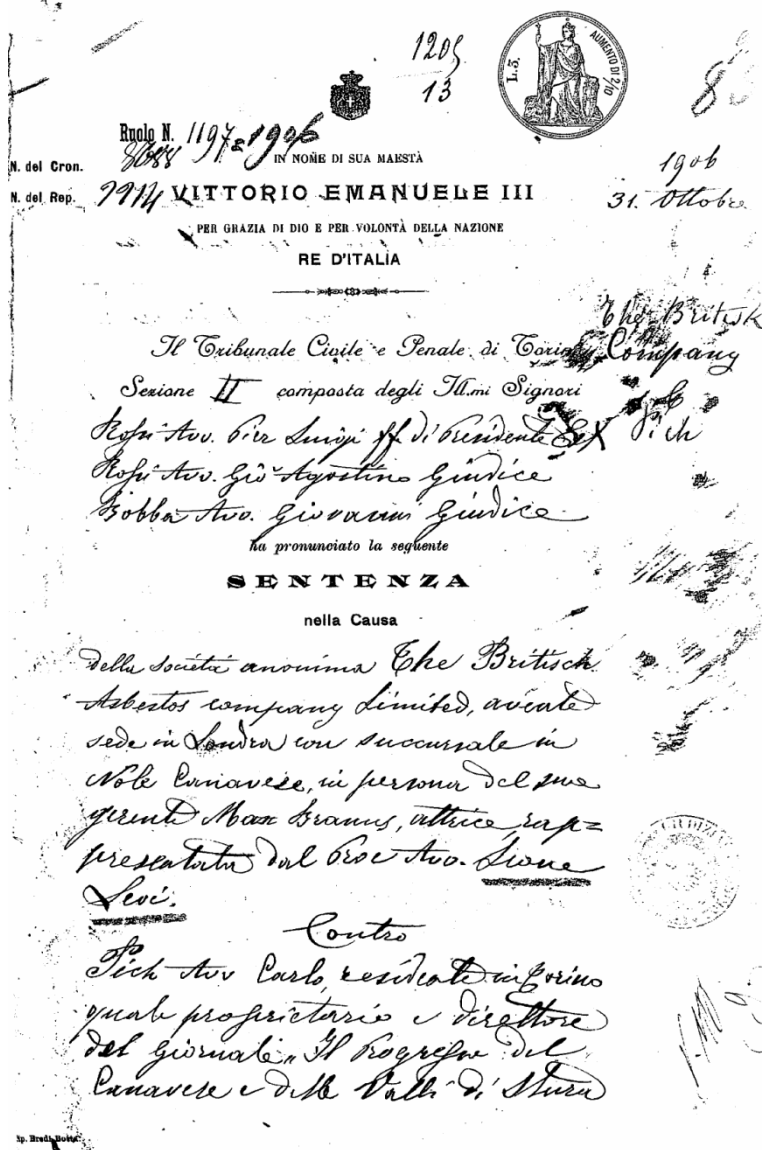 1205
13
L. 3.
AUMENTO DI 2/10
8
Ruolo N. 1197 a 1906
IN NOME DI SUA MAESTÀ
1906
N. del Cron.
N. del Rep. 9914 VITTORIO EMANUELE III
31. Ottobre
PER GRAZIA DI DIO E PER VOLONTÀ DELLA NAZIONE
RE D'ITALIA
The Britisk
Il Tribunale Civile e Penale di Torino
Company
Sezione II composta degli Ill.mi Signori
C
Rossi Avv. Pier Luigi ff. di Presidente
Pich
Rossi Avv. Gio Agostino Giudice
Bobba Avv. Giovanni Giudice
ha pronunciato la seguente
SENTENZA
nella Causa
della società anonima The Britisch
Asbestos company Limited, avente
sede in Londra con succursale in
Nole Canavese, in persona del suo
gerente Max Bramus, attrice, rap=
presentata dal Proc Avv. Leone
Levi.
Contro
Pich Avv Carlo, residente in Torino
quale proprietario e direttore
del giornale „Il Progresso del
Canavese e delle Valli di Stura